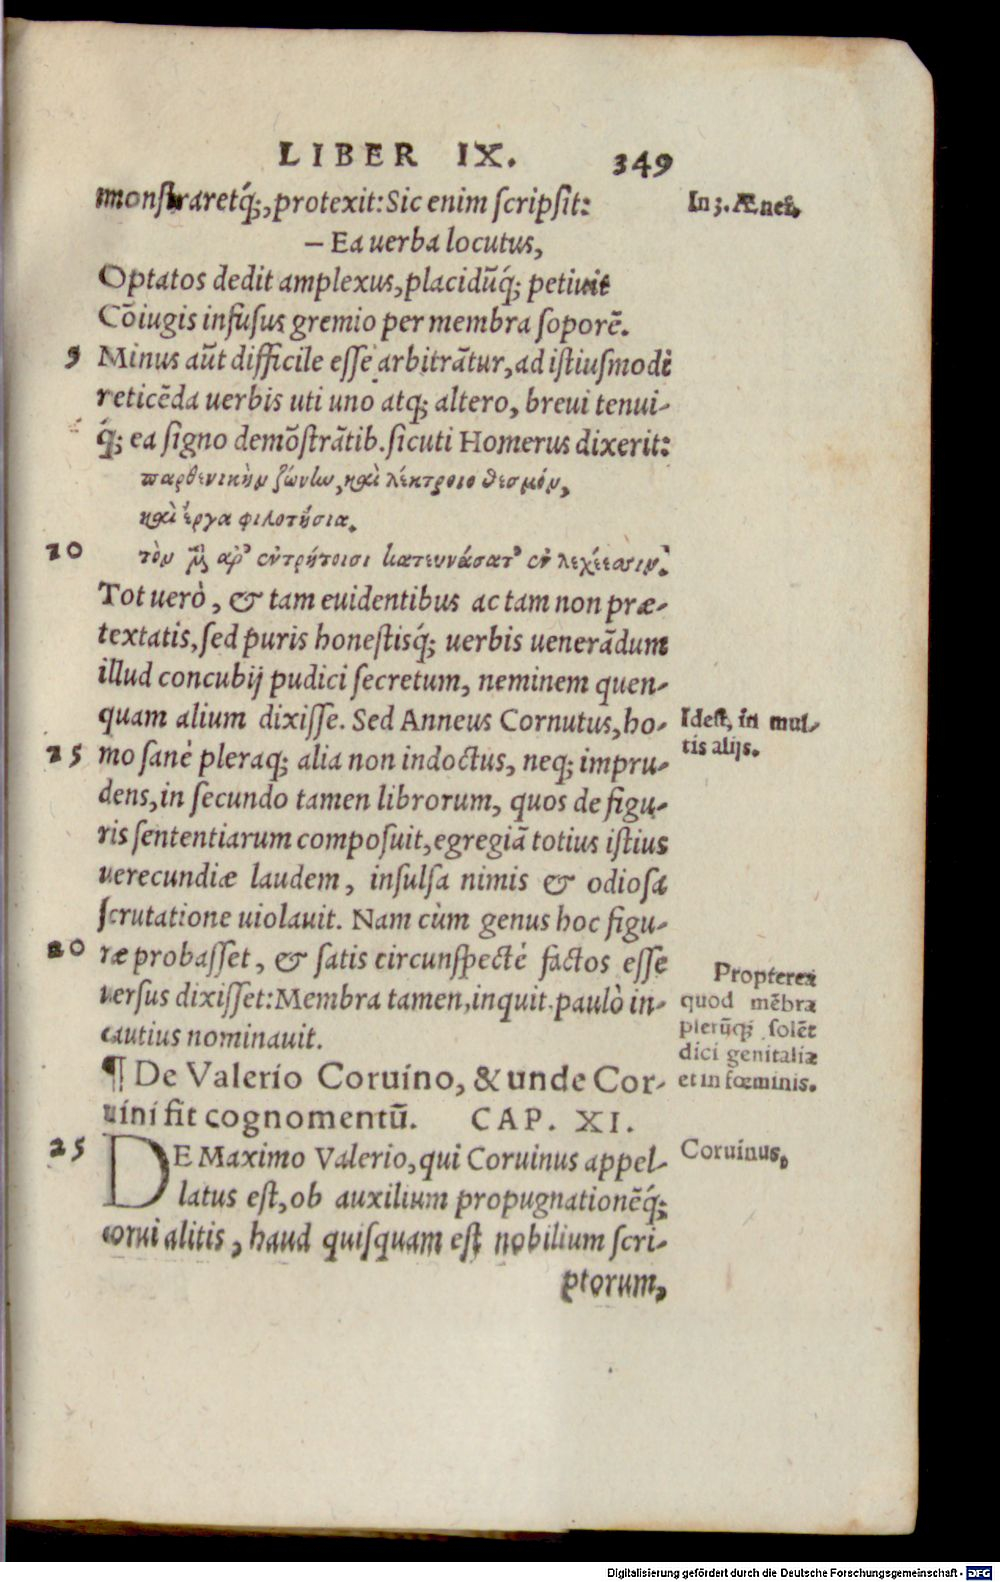 LIBER IX. 349
monſtraretq́;, protexit: Sic enim ſcripſit:
In 3. Æneẽ.
— Ea uerba locutus,
Optatos dedit amplexus, placidũq́; petiuit
Cõiugis infuſus gremio per membra ſoporẽ.
5 Minus aũt difficile eſſe arbitrãtur, ad iſtiuſmodi
reticẽda uerbis uti uno atq; altero, breui tenui-
q́; ea ſigno demõſtrãtib. ſicuti Homerus dixerit:
παρθενικὴν ζώνην, καὶ λέκτροιο θεσμόν,
καὶ ἔργα φιλοτήσια.
10 τὸν μὲν ἄρ' ἐν τρήτοισι κατευνάσατ' ἐν λεχέεσσιν.
Tot uerò, & tam euidentibus ac tam non præ-
textatis, ſed puris honeſtisq́; uerbis uenerãdum
illud concubij pudici ſecretum, neminem quen-
quam alium dixiſſe. Sed Anneus Cornutus, ho-
Ideſt, in mul-
tis alijs.
15 mo ſanè pleraq; alia non indoctus, neq; impru-
dens, in ſecundo tamen librorum, quos de figu-
ris ſententiarum compoſuit, egregiã totius iſtius
uerecundiæ laudem, inſulſa nimis & odioſa
ſcrutatione uiolauit. Nam cùm genus hoc figu-
20 ræ probaſſet, & ſatis circunſpectè factos eſſe
uerſus dixiſſet: Membra tamen, inquit, paulò in-
cautius nominauit.
Propterea
quod mẽbra
plerũq; ſolẽt
dici genitaliæ
et in fœminis.
¶ De Valerio Coruino, & unde Cor-
uini fit cognomentũ. CAP. XI.
25 DE Maximo Valerio, qui Coruinus appel-
Coruinus,
latus eſt, ob auxilium propugnationẽq́;
corui alitis, haud quiſquam eſt nobilium ſcri-
ptorum,
Digitalisierung gefördert durch die Deutsche Forschungsgemeinschaft - DFG